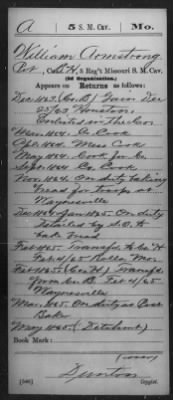 A 5 S.M. Cav. Mo.
William Armstrong
Pvt., Co. H, 5 Reg't Missouri S. M. Cav.
(2d Organization.)
Appears on Returns as follows:
Dec 1863. (Co. B) Gain Dec
25/63 Houston,
Enlisted in the Co.
Mar 1864. Co. Cook
Apl 1864. Mess Cook
May 1864. Cook for Co.
Sept 1864. Co. Cook
Nov 1864. On duty baking
bread for troops at
Waynesville
Dec 1864 Jan 1865. On duty
Detailed by S.O. to
bake bread
Feb 1865 Transfd. to Co. H
Feb 4/65 Rolla, Mo.
Feb 1865. (Co. H) Transfd.
from Co. B. Feb 4/65
Waynesville
Mar 1865. On duty as Post
Baker
May 1865. (Detachmt)
Book Mark:
(over)
Dunton
(546) Copyist.